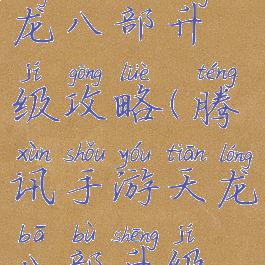 龙八部升
jí gōng lüè téng
级攻略(腾
xùn shǒu yóu tiān lóng
讯手游天龙
bā bù shēng jí
八部升级